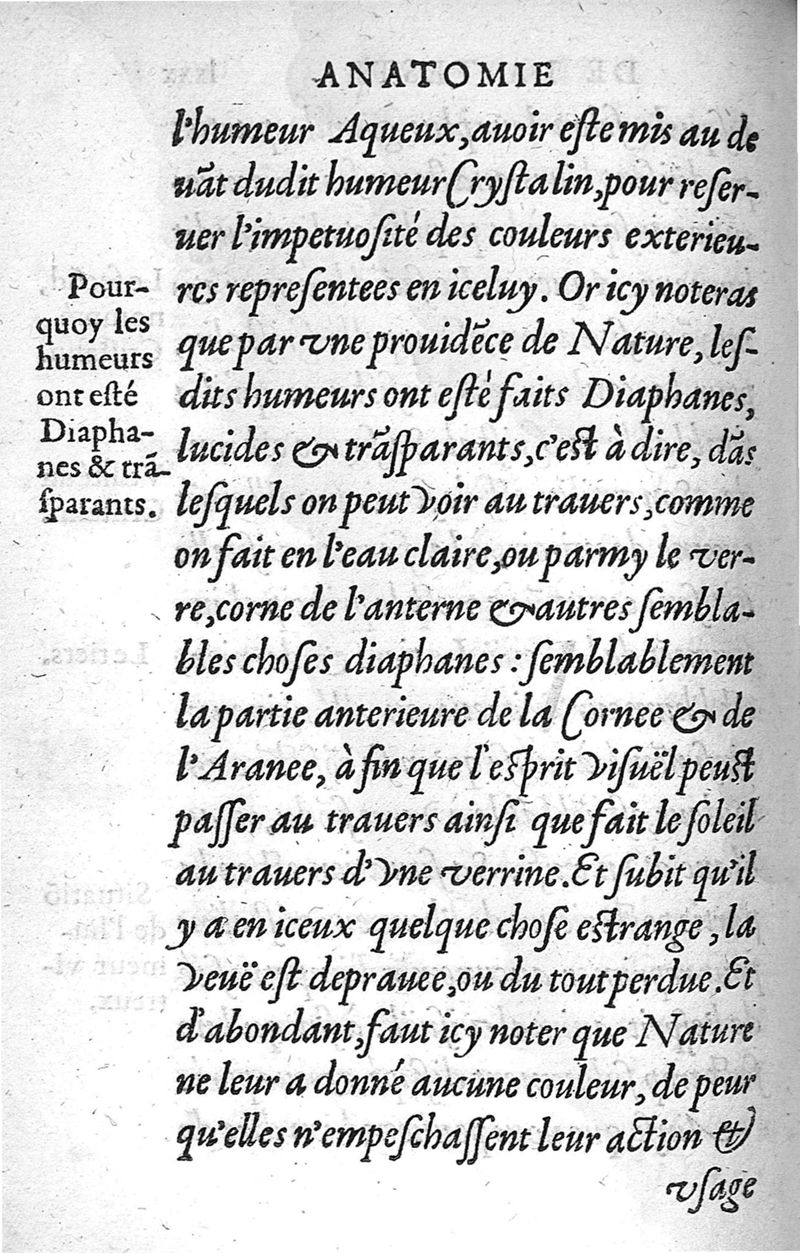 ANATOMIE
l'humeur Aqueux, auoir este mis au de
uãt dudit humeur Crystalin, pour reser-
uer l'impetuosité des couleurs exterieu-
res representees en iceluy. Or icy noteras
que par vne prouidẽce de Nature, les-
dits humeurs ont esté faits Diaphanes,
lucides & trãsparants, c'est à dire, dãs
lesquels on peut voir au trauers, comme
on fait en l'eau claire, ou parmy le ver-
re, corne de l'anterne & autres sembla-
bles choses diaphanes : semblablement
la partie anterieure de la Cornee & de
l'Aranee, à fin que l'esprit visuël peust
passer au trauers ainsi que fait le soleil
au trauers d'vne verrine. Et subit qu'il
y a en iceux quelque chose estrange, la
veuë est deprauee, ou du tout perdue. Et
d'abondant, faut icy noter que Nature
ne leur a donné aucune couleur, de peur
qu'elles n'empeschassent leur action &
vsage
Pour-
quoy les
humeurs
ont esté
Diapha-
nes & trã-
sparants.